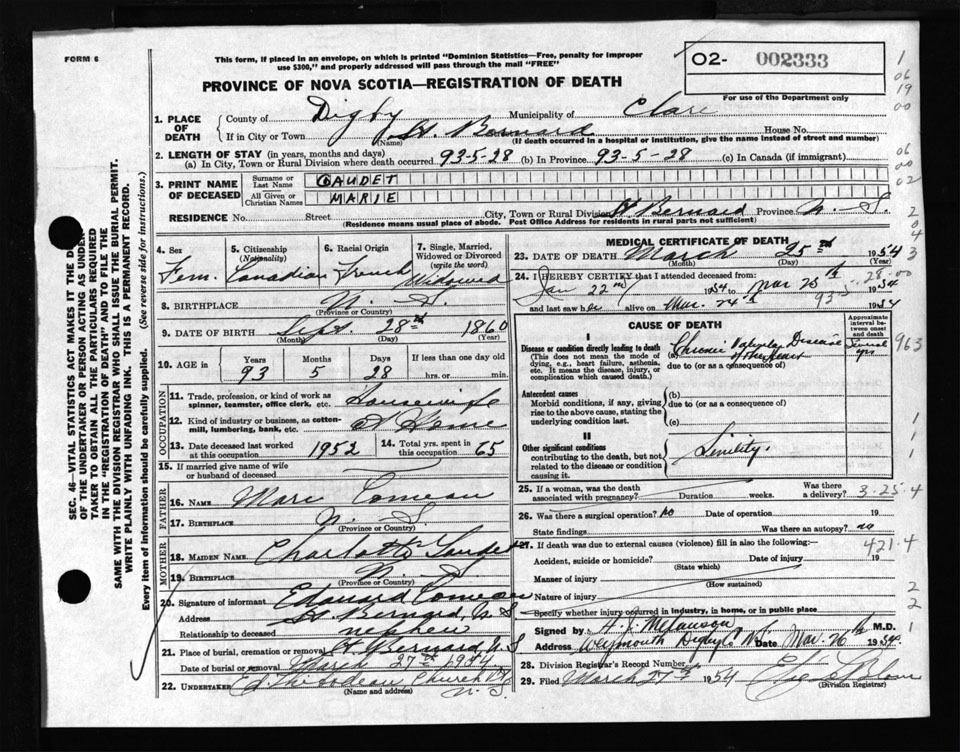 FORM 6
This form, if placed in an envelope, on which is printed "Dominion Statistics—Free, penalty for improper
use $300," and properly addressed will pass through the mail "FREE"
PROVINCE OF NOVA SCOTIA—REGISTRATION OF DEATH
O2- 002333
For use of the Department only
1. PLACE OF DEATH
County of Digby Municipality of Clare
If in City or Town St. Bernard House No.
(Name) (If death occurred in a hospital or institution, give name instead of street and number)
2. LENGTH OF STAY (in years, months and days)
(a) In City, Town or Rural Division where death occurred 93-5-28 (b) In Province 93-5-28 (c) In Canada (if immigrant)
3. PRINT NAME OF DECEASED
Surname or Last Name GAUDET
All Given or Christian Names MARIE
RESIDENCE No. Street City, Town or Rural Division St. Bernard Province N. S.
(Residence means usual place of abode. Post Office Address for residents in rural parts not sufficient)
4. Sex Fem.
5. Citizenship (Nationality) Canadian
6. Racial Origin French
7. Single, Married, Widowed or Divorced (write the word) Widowed
8. BIRTHPLACE N. S.
(Province or Country)
9. DATE OF BIRTH Sept. 28th 1860
(Month) (Day)
10. AGE in Years 93 Months 5 Days 28 If less than one day old hrs. or min.
OCCUPATION
11. Trade, profession, or kind of work as spinner, teamster, office clerk, etc. Housewife
12. Kind of industry or business, as cotton-mill, lumbering, bank, etc. At Home
13. Date deceased last worked at this occupation 1952
14. Total yrs. spent in this occupation 65
15. If married give name of wife or husband of deceased
FATHER
16. NAME Marc Comeau
17. BIRTHPLACE N. S.
(Province or Country)
MOTHER
18. MAIDEN NAME Charlotte Gaudet
19. BIRTHPLACE N. S.
(Province or Country)
20. Signature of informant Edouard Comeau
Address St. Bernard N. S
Relationship to deceased nephew
21. Place of burial, cremation or removal St. Bernard N. S
Date of burial or removal March 27th 1954
22. UNDERTAKER Ed Thibodeau Church Pt N. S
(Name and address)
MEDICAL CERTIFICATE OF DEATH
23. DATE OF DEATH March 25th 1954
(Month) (Day)
24. I HEREBY CERTIFY that I attended deceased from:
Jan 22nd 1954 to Mar 25th 1954
and last saw her alive on Mar. 24th 1954
93-5-28-00
CAUSE OF DEATH
Approximate interval between onset and death
I
Disease or condition directly leading to death
(This does not mean the mode of dying, e.g., heart failure, asthenia, etc. It means the disease, injury, or complication which caused death.)
(a) Chronic Valvular Disease of the heart Several yrs
due to (or as a consequence of)
Antecedent causes
Morbid conditions, if any, giving rise to the above cause, stating the underlying condition last.
(b)
due to (or as a consequence of)
(c)
II
Other significant conditions
contributing to the death, but not related to the disease or condition causing it.
Senility.
25. If a woman, was the death associated with pregnancy? Duration weeks. Was there a delivery? 3-25-4
26. Was there a surgical operation? No Date of operation 19
State findings Was there an autopsy? no
27. If death was due to external causes (violence) fill in also the following: 421.4
Accident, suicide or homicide? Date of injury 19
(State which)
Manner of injury
(How sustained)
Nature of injury
Specify whether injury occurred in industry, in home, or in public place
Signed by M.D.
Address Weymouth Digby Co NS Date Mar. 26th 1954
28. Division Registrar's Record Number
29. Filed March 27th 1954
(Division Registrar)
SEC. 46—VITAL STATISTICS ACT MAKES IT THE DUTY
OF THE UNDERTAKER OR PERSON ACTING AS UNDER-
TAKER TO OBTAIN ALL THE PARTICULARS REQUIRED
IN THE "REGISTRATION OF DEATH" AND TO FILE THE
SAME WITH THE DIVISION REGISTRAR WHO SHALL ISSUE THE BURIAL PERMIT.
WRITE PLAINLY WITH UNFADING INK. THIS IS A PERMANENT RECORD.
Every item of information should be carefully supplied. (See reverse side for instructions.)
963